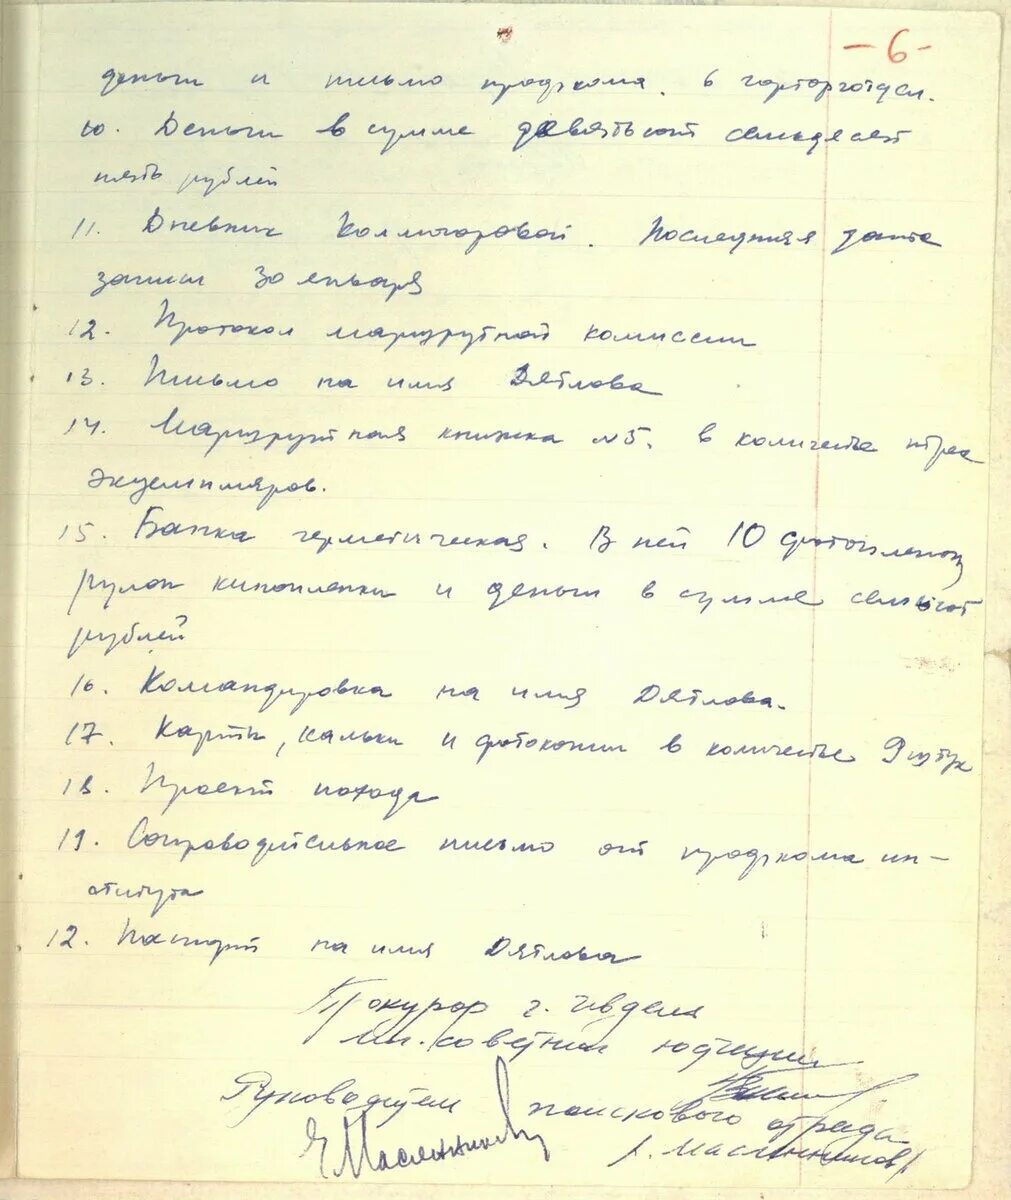 -6-
деньги и письмо профкома. в горторготдел.
10. Деньги в сумме девятьсот семьдесят
пять рублей
11. Дневник Колмогоровой. Последняя дата
записи 30 января
12. Протокол маршрутной комиссии
13. Письмо на имя Дятлова
14. Маршрутная книжка №5. в количестве трех
экземпляров.
15. Банка герметическая. В ней 10 фотопленок
рулон кинопленки и деньги в сумме семьсот
рублей
16. Командировка на имя Дятлова.
17. Карты, кальки и фотокопии в количестве 9 штук
18. Проект похода
19. Сопроводительное письмо от профкома ин-
ститута
12. Паспорт на имя Дятлова
Прокурор г. Ивделя
мл. советник юстиции
Руководитель поискового отряда
Е Масленников /. Масленников/